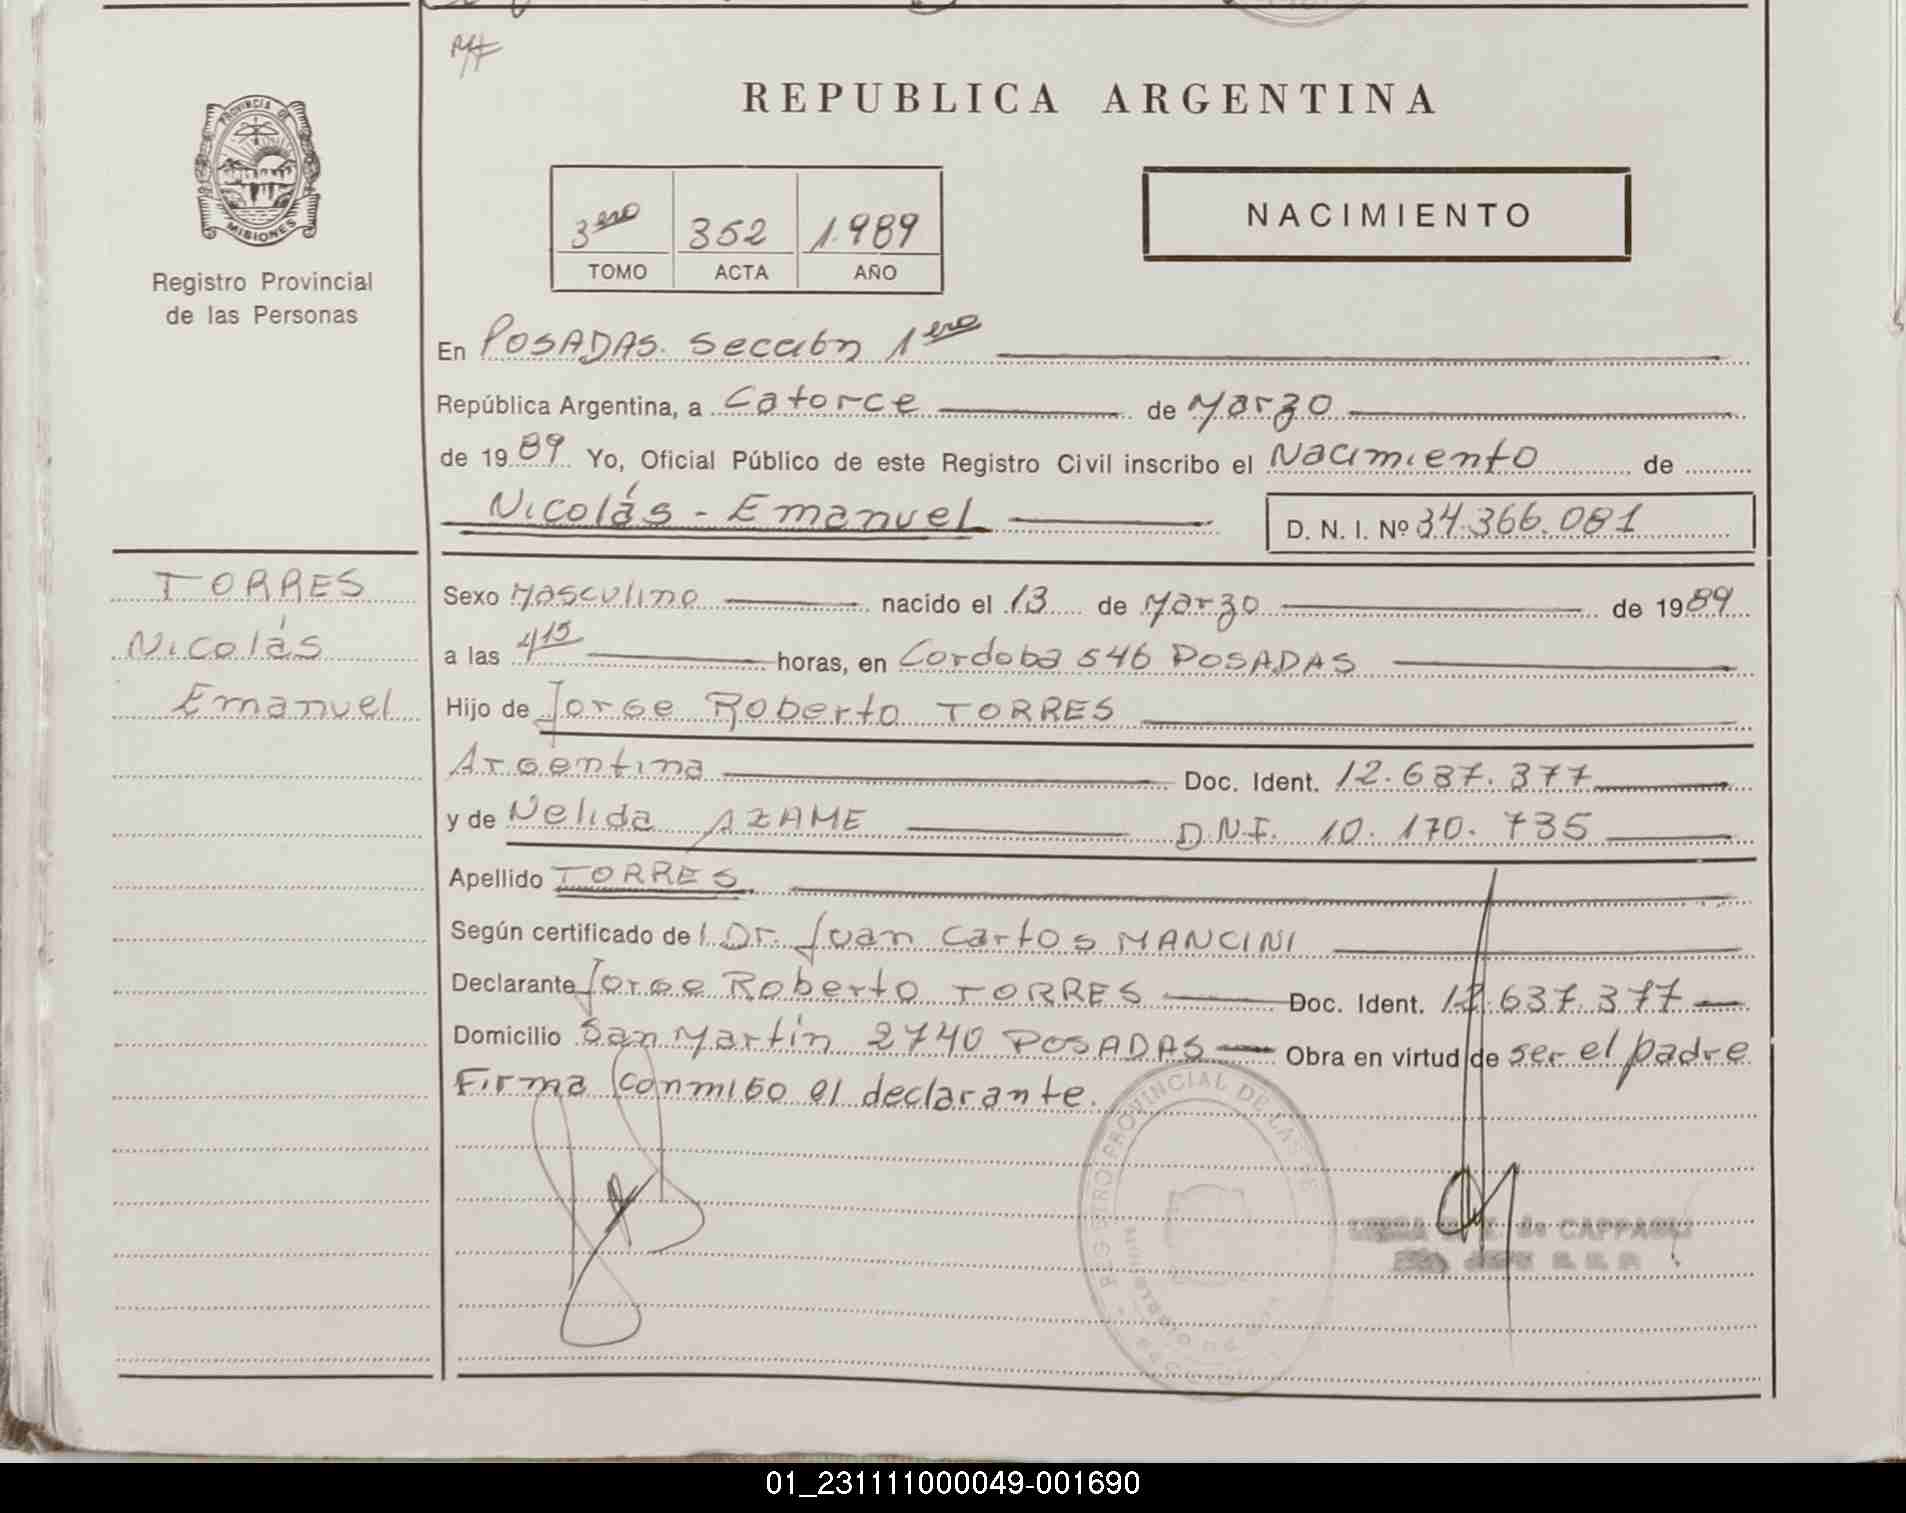 REPUBLICA ARGENTINA
PROVINCIA DE
MISIONES
Registro Provincial
de las Personas
3ero 352 1.989
TOMO ACTA AÑO
NACIMIENTO
En POSADAS. Sección 1era
República Argentina, a Catorce de Marzo
de 1989 Yo, Oficial Público de este Registro Civil inscribo el Nacimiento de
Nicolás - Emanuel
D. N. I. Nº 34.366.081
TORRES
Nicolás
Emanuel
Sexo Masculino nacido el 13 de Marzo de 1989
a las 4 15 horas, en Cordoba 546 POSADAS
Hijo de Jorge Roberto TORRES
Argentina Doc. Ident. 12.637.377
y de Nelida AZAME D.N.I. 10.170.735
Apellido TORRES
Según certificado del Dr. Juan Carlos MANCINI
Declarante Jorge Roberto TORRES Doc. Ident. 12.637.377
Domicilio San Martín 2740 POSADAS Obra en virtud de ser el padre
Firma conmigo el declarante.
REGISTRO PROVINCIAL DE LAS
de CAPPAGLI
01_231111000049-001690